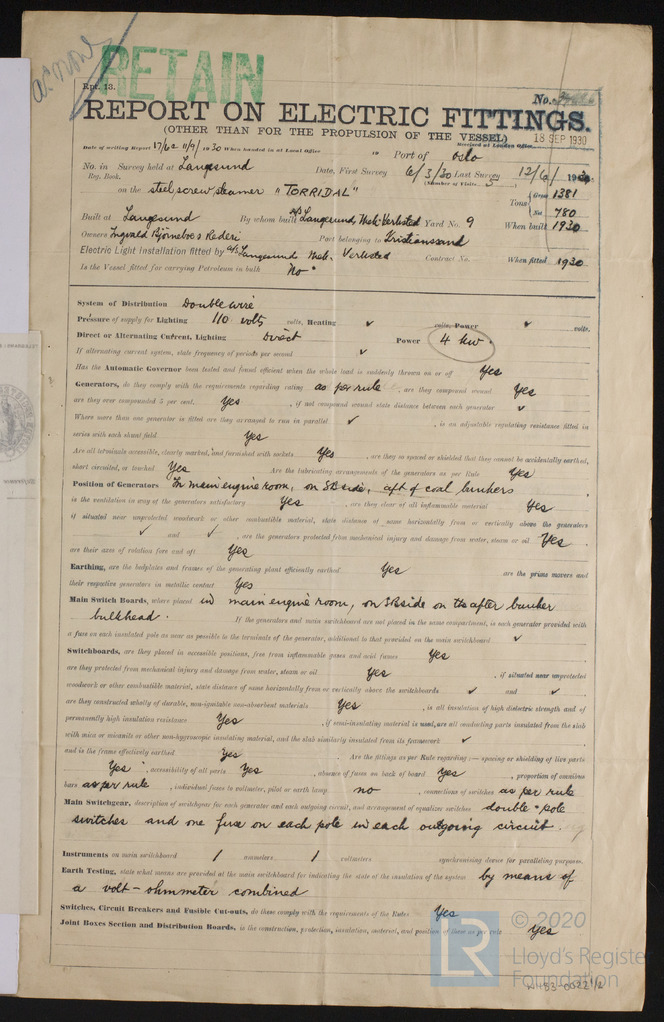 as now
RETAIN
Rpt. 13.
No.
REPORT ON ELECTRIC FITTINGS.
(OTHER THAN FOR THE PROPULSION OF THE VESSEL)
18 SEP 1930
Date of writing Report 17/6 & 11/9/1930 When handed in at Local Office 19 Port of Oslo Received at London Office
No. in Survey held at Langesund Date, First Survey 6/3/30 Last Survey 12/6/1930
Reg. Book. (Number of Visits 5
on the steel, screw steamer "TORRIDAL" Tons Gross 1381
Net 780
Built at Langesund By whom built A/S Langesund Mek. Verksted Yard No. 9 When built 1930
Owners Ingvald Bjornebo's Rederi Port belonging to Kristianssand
Electric Light Installation fitted by A/S Langesund Mek. Verksted Contract No. When fitted 1930
Is the Vessel fitted for carrying Petroleum in bulk No.
System of Distribution Double wire
Pressure of supply for Lighting 110 volts volts, Heating ✓ volts, Power ✓ volts.
Direct or Alternating Current, Lighting Direct Power 4 kw.
If alternating current system, state frequency of periods per second ✓
Has the Automatic Governor been tested and found efficient when the whole load is suddenly thrown on or off Yes
Generators, do they comply with the requirements regarding rating as per rule, are they compound wound Yes
are they over compounded 5 per cent. Yes, if not compound wound state distance between each generator ✓
Where more than one generator is fitted are they arranged to run in parallel ✓, is an adjustable regulating resistance fitted in
series with each shunt field Yes
Are all terminals accessible, clearly marked, and furnished with sockets Yes, are they so spaced or shielded that they cannot be accidentally earthed,
short circuited, or touched Yes Are the lubricating arrangements of the generators as per Rule Yes
Position of Generators In main engine room, on SB side, aft of coal bunkers
is the ventilation in way of the generators satisfactory Yes, are they clear of all inflammable material Yes
if situated near unprotected woodwork or other combustible material, state distance of same horizontally from or vertically above the generators
✓ and ✓, are the generators protected from mechanical injury and damage from water, steam or oil Yes.
are their axes of rotation fore and aft Yes
Earthing, are the bedplates and frames of the generating plant efficiently earthed Yes are the prime movers and
their respective generators in metallic contact Yes
Main Switch Boards, where placed in main engine room, on SB side on the after bunker
bulkhead. If the generators and main switchboard are not placed in the same compartment, is each generator provided with
a fuse on each insulated pole as near as possible to the terminals of the generator, additional to that provided on the main switchboard ✓
Switchboards, are they placed in accessible positions, free from inflammable gases and acid fumes Yes
are they protected from mechanical injury and damage from water, steam or oil Yes, if situated near unprotected
woodwork or other combustible material, state distance of same horizontally from or vertically above the switchboards ✓ and ✓
are they constructed wholly of durable, non-ignitable non-absorbent materials Yes, is all insulation of high dielectric strength and of
permanently high insulation resistance Yes, if semi-insulating material is used, are all conducting parts insulated from the slab
with mica or micanite or other non-hygroscopic insulating material, and the slab similarly insulated from its framework ✓
and is the frame effectively earthed Yes Are the fittings as per Rule regarding:— spacing or shielding of live parts
Yes, accessibility of all parts Yes, absence of fuses on back of board Yes, proportion of omnibus
bars as per rule, individual fuses to voltmeter, pilot or earth lamp no, connections of switches as per rule
Main Switchgear, description of switchgear for each generator and each outgoing circuit, and arrangement of equalizer switches double-pole
switches and one fuse on each pole in each outgoing circuit.
Instruments on main switchboard 1 ammeters 1 voltmeters synchronising device for paralleling purposes.
Earth Testing, state what means are provided at the main switchboard for indicating the state of the insulation of the system by means of
a volt-ohmmeter combined
Switches, Circuit Breakers and Fusible Cut-outs, do these comply with the requirements of the Rules Yes
Joint Boxes Section and Distribution Boards, is the construction, protection, insulation, material, and position of these as per rule Yes
LR
© 2020
Lloyd's Register
Foundation
W453-0022 1/2